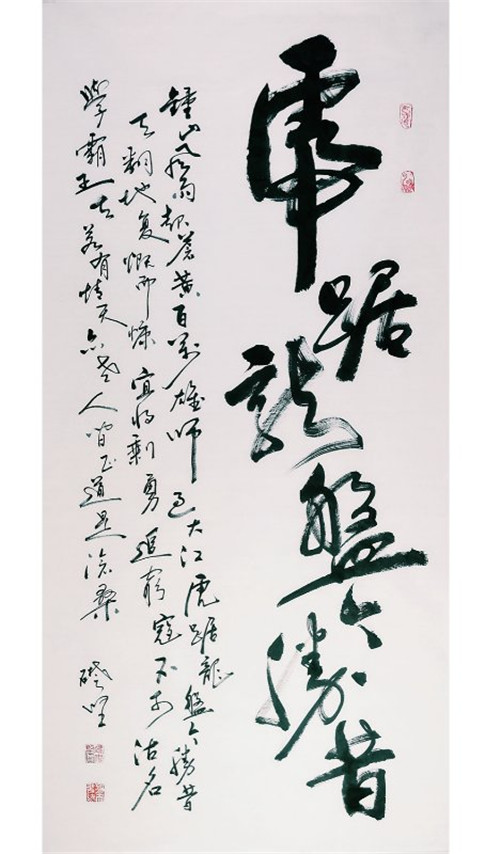 虎踞龍盤今勝昔
鍾山風雨起蒼黄百万雄師过大江虎踞龍盤今勝昔
天翻地复慨而慷宜将剩勇追窮寇不可沽名
學霸王天若有情天亦老人间正道是滄桑